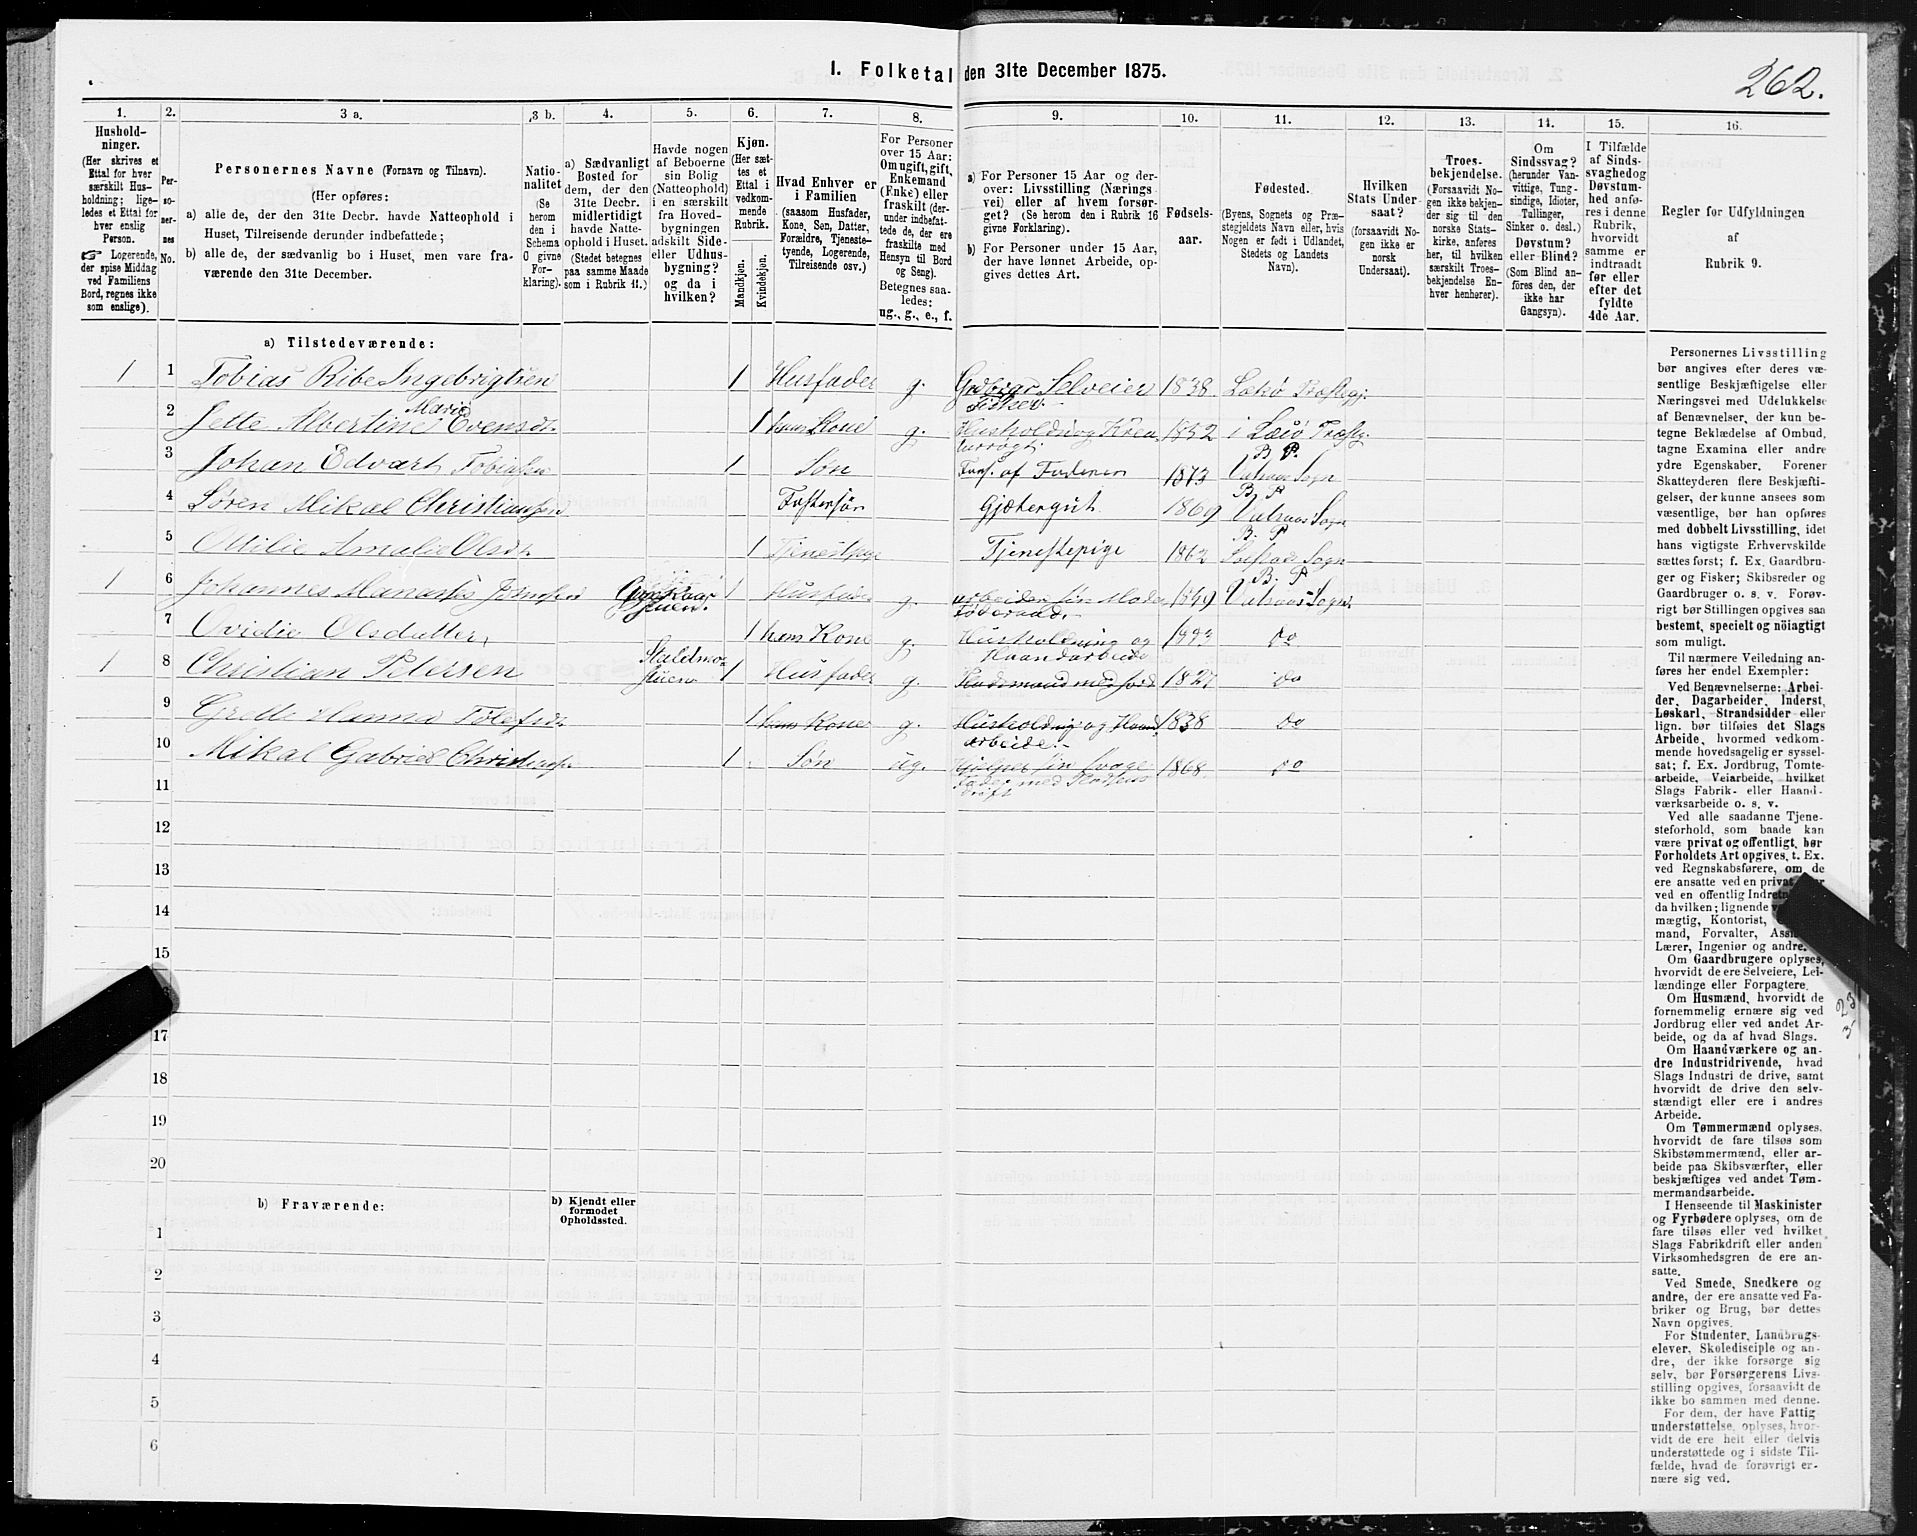 1. Folketal den 31te December 1875.
262.
1.
2.
3 a.
3 b.
4.
5.
6.
7.
8.
9.
10.
11.
12.
13.
14.
15.
16.
Hushold-
ninger.
(Her skrives et
Ettal for hver
særskilt Hus-
holdning; lige-
ledes et Ettal for
hver enslig
Person.
☞ Logerende,
der spise Middag
ved Familiens
Bord, regnes ikke
som enslige).
Per-
so-
ner-
nes
No.
Personernes Navne (Fornavn og Tilnavn).
(Her opføres:
a) alle de, der den 31te Decbr. havde Natteophold i
Huset, Tilreisende derunder indbefattede;
b) alle de, der sædvanlig bo i Huset, men vare fra-
værende den 31te December.
Natio-
nalitet
(Se
herom
den i
Schema
O givne
For-
klaring).
a) Sædvanligt
Bosted for
dem, der den
31te Decbr.
midlertidigt
havde Natte-
ophold i Huset.
(Stedet betegnes
paa samme Maade
som i Rubrik 11.)
Havde nogen
af Beboerne
sin Bolig
(Natteophold)
i en særskilt
fra Hoved-
bygningen
adskilt Side-
eller Udhus-
bygning?
og da i
hvilken?
Kjøn.
(Her sæt-
tes et
Ettal i
vedkom-
mende
Rubrik.
Mandkjøn.
Kvindekjøn.
Hvad Enhver er
i Familien
(saasom Husfader,
Kone, Søn, Datter,
Forældre, Tjeneste-
tyende, Logerende,
Tilreisende osv.)
For Personer
over 15 Aar:
Om ugift, gift,
Enkemand
(Enke) eller
fraskilt (der-
under indbefat-
tede de, der ere
fraskilte med
Hensyn til Bord
og Seng).
Betegnes saa-
ledes:
ug., g., e., f.
a) For Personer 15 Aar og der-
over: Livsstilling (Nærings-
vei) eller af hvem forsør-
get? (Se herom den i Rubrik 16
givne Forklaring).
b) For Personer under 15 Aar,
der have lønnet Arbeide, op-
gives dettes Art.
Fødsels-
aar.
Fødested.
(Byens, Sognets og Præ-
stegjeldets Navn eller, hvis
Nogen er født i Udlandet,
Stedets og Landets
Navn).
Hvilken
Stats Under-
saat?
(forsaavidt No-
gen ikke er
norsk
Undersaat).
Troes-
bekjendelse.
(Forsaavidt No-
gen ikke bekjen-
der sig til den
norske Stats-
kirke, anføres
her, til hvilken
særskilt Troes-
bekjendelse En-
hver henhører).
Om
Sindssvag?
(herunder Van-
vittige, Tung-
sindige, Idioter,
Tullinger,
Sinker o. desl.)
Døvstum?
eller Blind?
(Som Blind an-
føres den, der
ikke har
Gangsyn).
I Tilfælde
af Sinds-
svaghed og
Døvstum-
hed anfø-
res i denne
Rubrik,
hvorvidt
samme er
indtraadt
før eller
efter det
fyldte
4de Aar.
Regler for Udfyldningen
af
Rubrik 9.
a) Tilstedeværende:
1 1 Tobias Ribe Ingebrigtsen 1 Husfader g. Grdbrgr Selveier 1838 Lekø Præstegj.
Fisker.
2 Jette Albertine Marie Evensdt. 1 hans Kone g. Husholdning Krea 1852 i Præstg.
turrøgt B. P.
3 Johan Edvart Tobiassen 1 Søn Fors. af Faderen 1873 Sogn
B. P
4 Søren Mikal Christiansen Fostersøn Gjætergut 1869 Sogn
B. P
5 Ottilie Amalie Olsdt. 1 Tjenestpige Tjenestepige 1862 Sogn
B. P
1 6 Johannes Johnsen 1 Husfader g. arbeider sin Moder 1849 Sogn
Føderaad.
7 Ovidie Olsdatter, 1 hans Kone g. Husholdning og do
Haandarbeide
1 8 Christian Petersen 1 Husfader g. 1827 do
9 Grette Hanna Tolefsdt 1 hans Kone g. Husholdnig og Haand 1838 do
arbeide.
10 Mikal Gabriel Christians. 1 Søn ug. Hjelper sin 1868 do
Fader med
drift
11
12
13
14
15
17
18
19
20
b) Fraværende:
b) Kjendt eller
formodet
Opholdssted.
1
2
3
4
5
6
Personernes Livsstilling
bør angives efter deres væ-
sentlige Beskjæftigelse eller
Næringsvei med Udelukkelse
af Benævnelser, der kun be-
tegne Beklædelse af Ombud,
tagne Examina eller andre
ydre Egenskaber. Forener
Skatteyderen flere Beskjæfti-
gelser, der kunne ansees som
væsentlige, bør han opføres
med dobbelt Livsstilling, idet
hans vigtigste Erhvervskilde
sættes først; f. Ex. Gaardbru-
ger og Fisker; Skibsreder og
Gaardbruger o. s. v. Forøv-
rigt bør Stillingen opgives saa
bestemt, specielt og nöiagtigt
som muligt.
Til nærmere Veiledning an-
føres her endel Exempler:
Ved Benævnelserne: Arbei-
der, Dagarbeider, Inderst,
Løskarl, Strandsidder eller
lign. bør tilføies det Slags
Arbeide, hvormed vedkom-
mende hovedsagelig er syssel-
sat; f. Ex. Jordbrug, Tomte-
arbeide, Veiarbeide, hvilket
Slags Fabrik- eller Haand-
værksarbeide o. s. v.
Ved alle saadanne Tjene-
steforhold, som baade kan
være privat og offentligt, bør
Forholdets Art opgives, t. Ex.
ved Regnskabsførere, om de
ere ansatte ved en
ved en offentlig
da hvilken; lignende
mægtig, Kontorist,
mand, Forvalter,
Lærer, Ingeniør og andre.
Om Gaardbrugere oplyses,
hvorvidt de ere Selveiere, Lei-
lændinge eller Forpagtere.
Om Husmænd, hvorvidt de
fornemmelig ernære sig ved
Jordbrug eller ved andet Ar-
beide, og da af hvad Slags.
Om Haandværkere og an-
dre Industridrivende, hvad
Slags Industri de drive, samt
hvorvidt de drive den selv-
stændigt eller ere i andres
Arbeide.
Om Tømmermænd oplyses,
hvorvidt de fare tilsøs som
Skibstømmermænd, eller ar-
beide paa Skibsværfter, eller
beskjæftiges ved andet Tøm-
mermandsarbeide.
I Henseende til Maskinister
og Fyrbødere oplyses, om de
fare tilsøs eller ved hvilket
Slags Fabrikdrift eller anden
Virksomhedsgren de ere an-
satte.
Ved Smede, Snedkere og
andre, der ere ansatte ved Fa-
briker og Brug, bør dettes
Navn opgives.
For Studenter, Landbrugs-
elever, Skoledisciple og an-
dre, der ikke forsørge sig
selv, bør Forsørgerens Livs-
stilling opgives, forsaavidt de
ikke bo sammen med denne.
For dem, der have Fattig
understøttelse, oplyses, hvor-
vidt de ere helt eller delvis
understøttede og i sidste Til-
fælde, hvad de forøvrigt er-
nære sig ved.